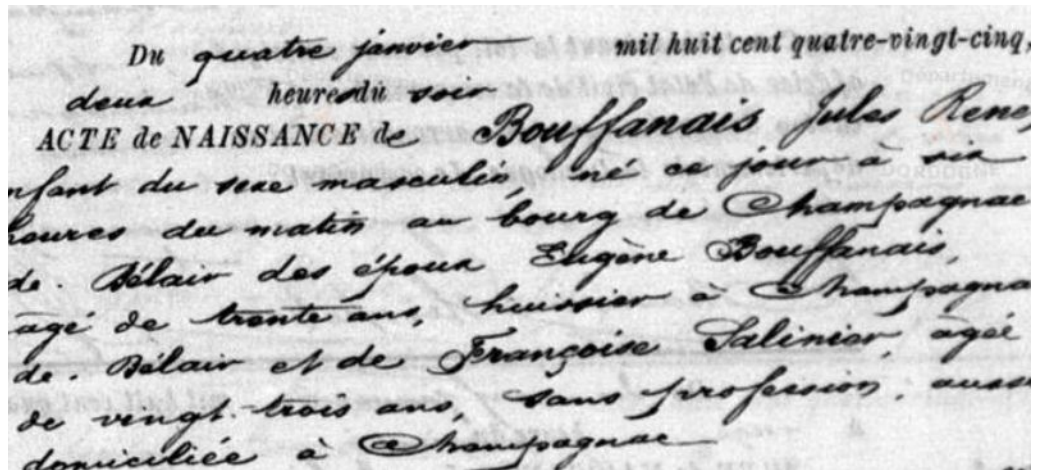 Du quatre janvier mil huit cent quatre-vingt-cinq,
deux heures du soir
ACTE de NAISSANCE de Bouffanais Jules René,
nfant du sexe masculin, né ce jour à six
heures du matin au bourg de Champagnac
de. Bélair des époux Eugène Bouffanais,
agé de trente ans, huissier à Champagna
de. Bélair et de Françoise Salinier, agée
de vingt-trois ans, sans profession, aussi
domiciliée à Champagnac